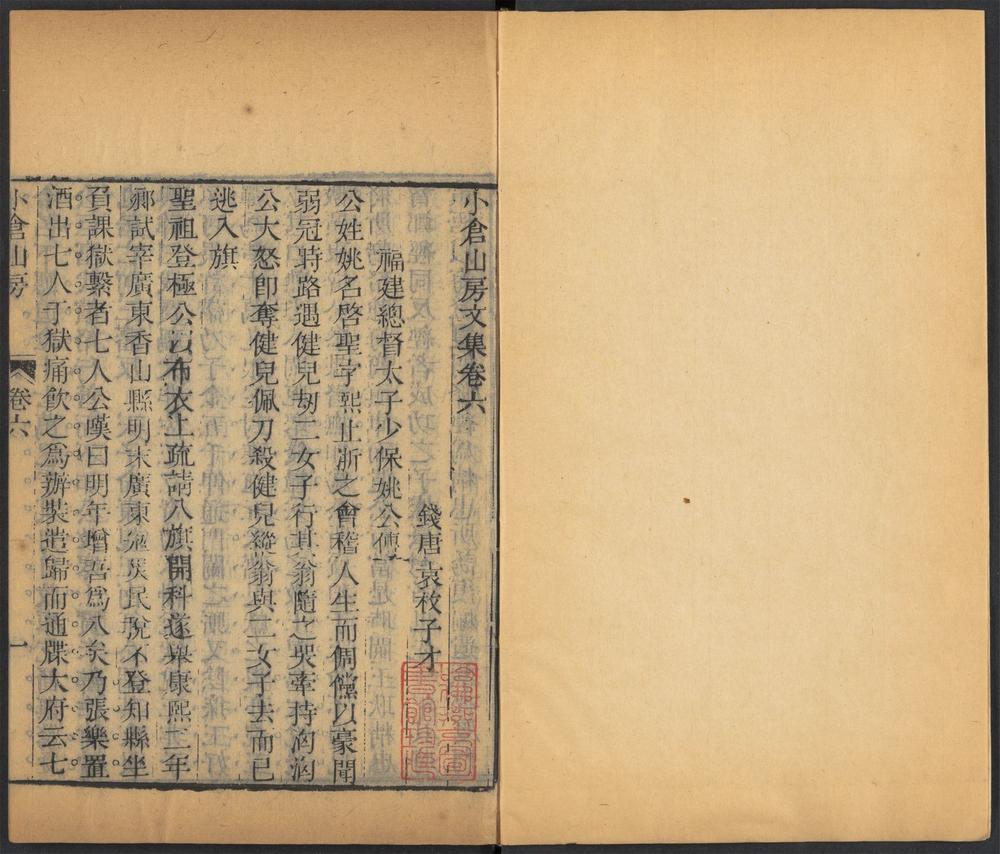 小倉山房文集卷六
錢唐袁枚子才
福建總督太子少保姚公傳
公姓姚名啓聖字熙止浙之會稽人生而倜儻以豪聞
弱冠時路遇健兒刼二女子行其翁隨之哭牽持洶洶
公大怒卽奪健兒佩刀殺健兒縱翁與二女子去而已
逃入旗
聖祖登極公以布衣上疏請八旗開科遂舉康熙二年
鄉試宰廣東香山縣明末廣東頻災民稅不登知縣坐
負課獄繫者七人公嘆曰明年增吾爲八矣乃張樂置
酒出七人于獄痛飲之爲辦裝遣歸而通牒大府云七
小倉山房
卷六
一